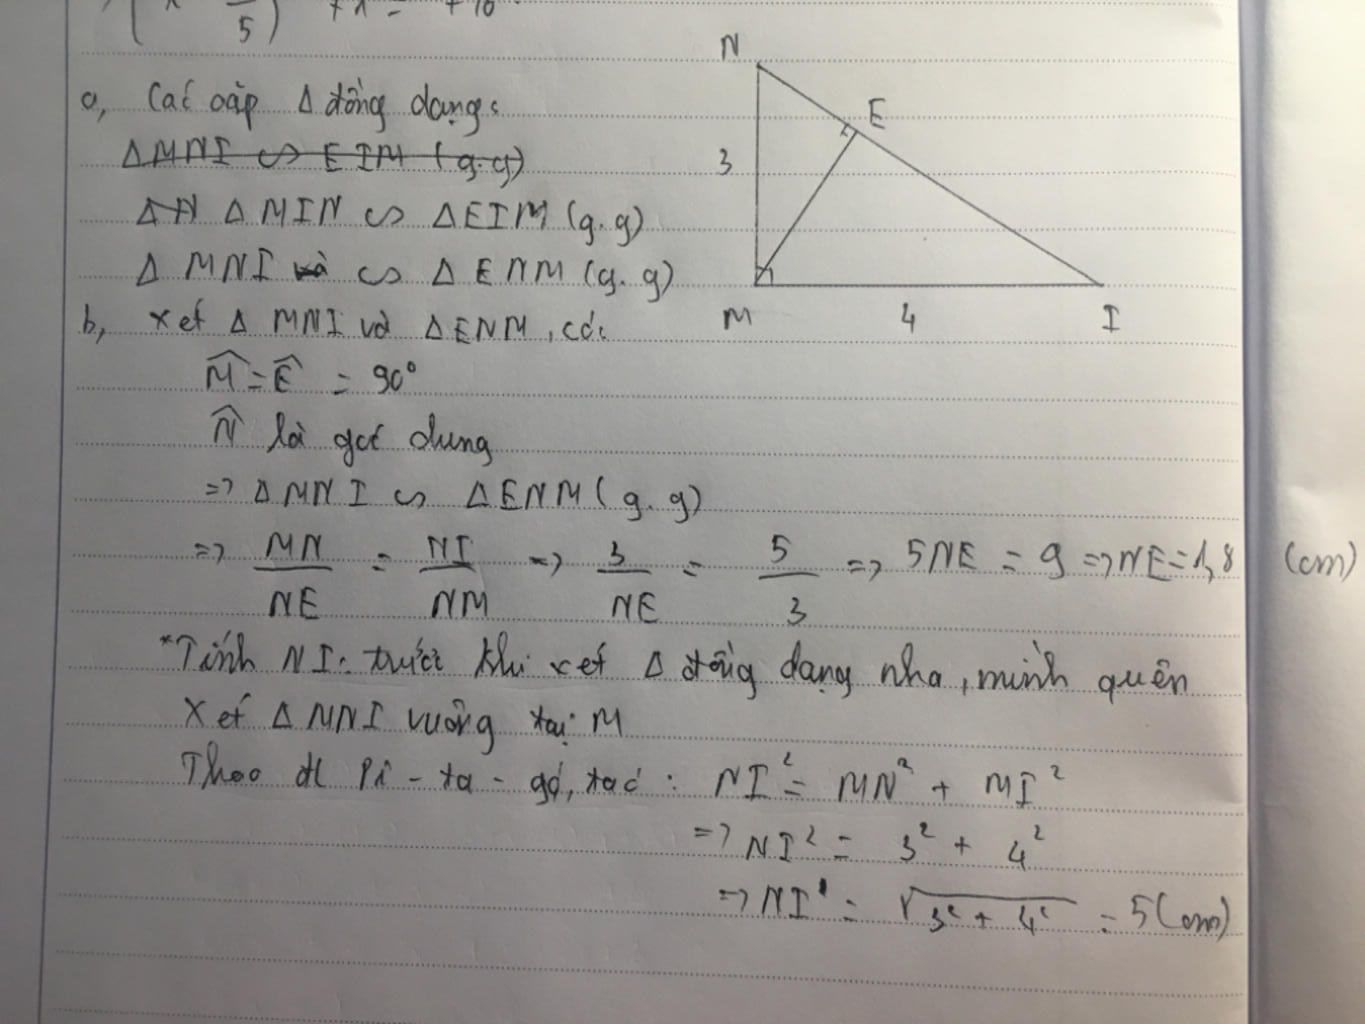 5) + x = + 10
a, Các cặp Δ đồng dạng:
Δ MNI ∽ EIM (g.g)
Δ N Δ MIN ∽ Δ EIM (g.g)
Δ MNI và ∽ Δ ENM (g.g)
b, Xét Δ MNI và Δ ENM, có:
M̂ = Ê = 90°
N̂ là góc chung
=> Δ MNI ∽ Δ ENM (g.g)
=> MN/NE = NI/NM => 3/NE = 5/3 => 5NE = 9 => NE = 1,8 (cm)
*Tính NI: trước khi xét Δ đồng dạng nha, mình quên
Xét Δ MNI vuông tại M
Theo đl Pi-ta-go, ta có: NI² = MN² + MI²
=> NI² = 3² + 4²
=> NI = √3² + 4² = 5 (cm)
N
E
3
M
4
I